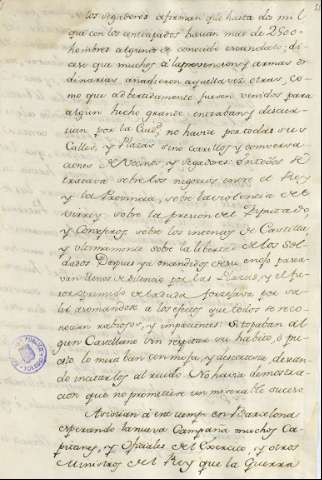 los segadores afirman que hasta dos mil
que con los anticipados hacian mas de 2500
hombres algunos de conocido escandalo; di
cese que muchos à la prevencion y armas or
dinarias añadieron aquella vez otras, co
mo que advertidamente fuesen venidos para
algun hecho grande entraban y discur
rian por la Ciud. no havia por todas sus
Calles, y Plazas sino corrillos y conversa
ciones de Vecinos y segadores: En todos se
trataba sobre los negocios entre el Rey
y la Provincia, sobre la violencia del
virrey sobre la prision del Diputado,
y Consejeros sobre los intentos de Castilla,
y ultimamente sobre la libertad de los Sol
dados Despues ya encendidos de su enojo pasea
van llenos de silencio por las Plazas, y el fu
ror oprimido de la duda forcejava por sa
lir asomandose a los efectos que todos se reco
nocian rabiosos, y impacientes: Si topaban al
gun Castellano sin respetar su habito, ó pu
esto lo miraban con mofa, y descortesia, desean
do incitarlos al ruido. No havia demostra
cion que no prometiese un miserable suceso
Asistian à este tiempo en Barcelona
esperando la nueva Campaña muchos Ca
pitanes, y Oficiales del Exercito, y otros
Ministros del Rey que la Guerra